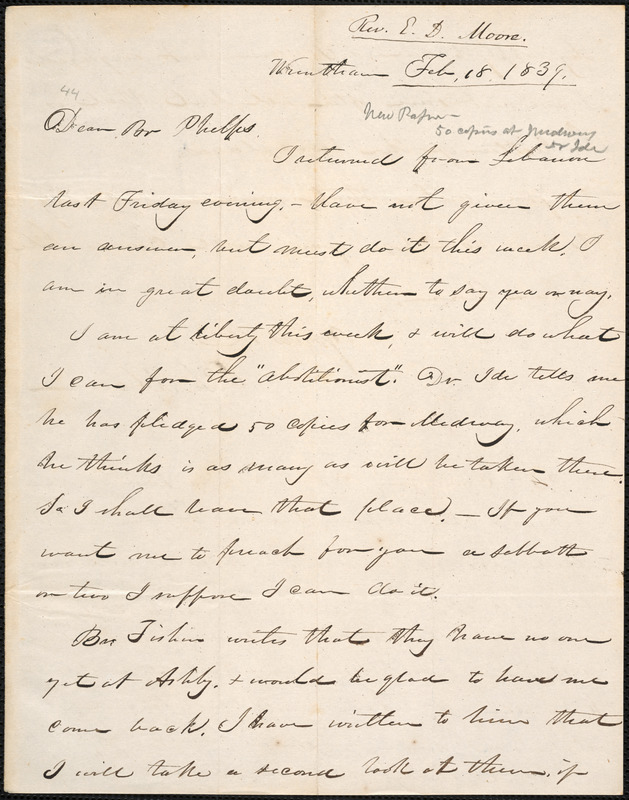 Rev. E. D. Moore.
Wrentham Feb, 18. 1839.
44
New Paper -
50 copies at Medway
Dr Ide
Dear Br Phelps.
I returned from Lebanon
last Friday evening. - Have not given them
an answer, but must do it this week. I
am in great doubt, whether to say yea or nay.
I am at liberty this week, & will do what
I can for the "abolitionist". Dr. Ide tells me
he has pledged 50 copies for Medway, which
he thinks is as many as will be taken there.
So I shall leave that place. - If you
want me to preach for you a sabbath
or two I suppose I can do it.
Br Fisher writes that they have no one
yet at Ashby. & would be glad to have me
come back. I have written to him that
I will take a second look at them, if